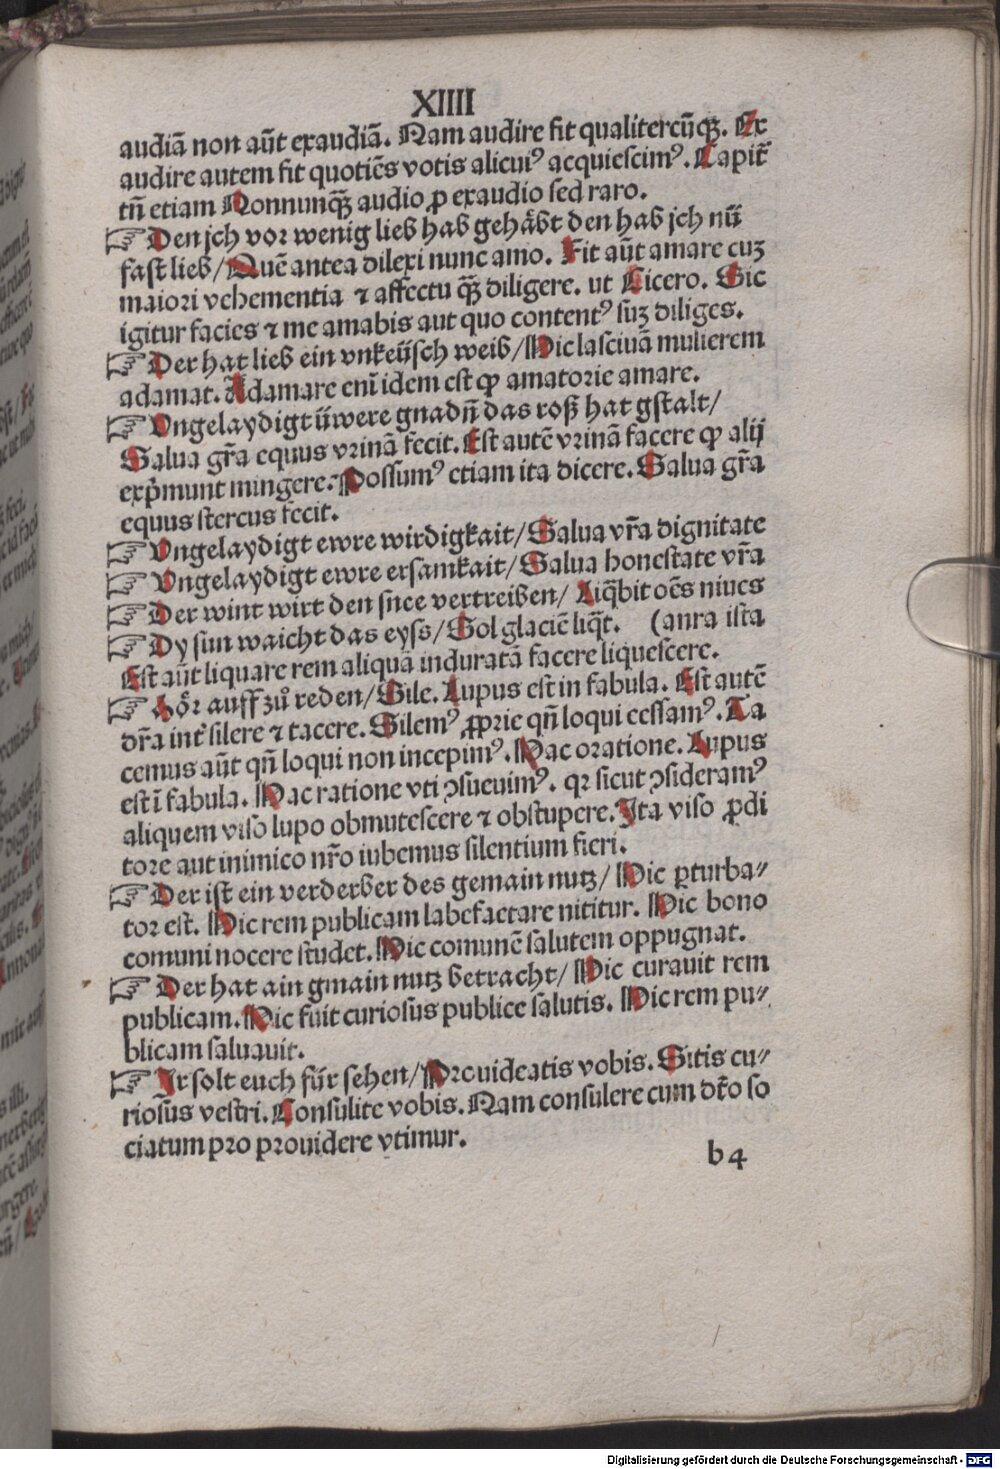 XIIII
audiā non aūt exaudiā. Nam audire fit qualitercūqꝫ. Ex
audire autem fit quotiēs votis alicuiꝰ acquiescimꝰ. Capit̄
tn̄ etiam Nonnunqꝫ audio ꝓ exaudio sed raro.
☞ Den jch vor wenig lieb hab gehåbt den hab jch nū
fast lieb/ Quē antea dilexi nunc amo. Fit aūt amare cuꝫ
maiori vehementia ⁊ affectu qꝫ diligere. ut Cicero. Sic
igitur facies ⁊ me amabis aut quo contentꝰ suꝫ diliges.
☞ Der hat lieb ein vnkeüsch weib/ Hic lasciuā mulierem
adamat. Adamare eni̅ idem est qꝫ amatorie amare.
☞ Vngelaydigt üwere gnadn̄ das roß hat gstalt/
Salua gr̄a equus vrinā fecit. Est autē vrinā facere qꝫ alij
exp̄munt mingere. Possumꝰ etiam ita dicere. Salua gr̄a
equus stercus fecit.
☞ Vngelaydigt ewre wirdigkait/ Salua vr̄a dignitate
☞ Vngelaydigt ewre ersamkait/ Salua honestate vr̄a
☞ Der wint wirt den snee vertreiben/ Liq̄bit oēs niues
☞ Dy sun waicht das eyss/ Sol glaciē liq̄t. (anra ista
Est aūt liquare rem aliquā induratā facere liquescere.
☞ Hör auff zů reden/ Sile. Lupus est in fabula. Est autē
dr̄a int̄ silere ⁊ tacere. Silemꝰ ꝓprie qn̄ loqui cessamꝰ. Ta
cemus aūt qn̄ loqui non incepimꝰ. Hac oratione. Lupus
est ī fabula. Hac ratione vti ꝯsueuimꝰ. qr sicut ꝯsideramꝰ
aliquem viso lupo obmutescere ⁊ obstupere. Ita viso ꝓdi
tore aut inimico nr̄o iubemus silentium fieri.
☞ Der ist ein verderber des gemain nutz/ Hic ꝑturba⸗
tor est. Hic rem publicam labefactare nititur. Hic bono
comuni nocere studet. Hic comunē salutem oppugnat.
☞ Der hat ain gmain nutz betracht/ Hic curauit rem
publicam. Hic fuit curiosus publice salutis. Hic rem pu⸗
blicam saluauit.
☞ Ir solt euch für sehen/ Prouideatis vobis. Sitis cu⸗
riosus vestri. Consulite vobis. Nam consulere cum dt̄o so
ciatum pro prouidere vtimur.
b4
Digitalisierung gefördert durch die Deutsche Forschungsgemeinschaft - DFG